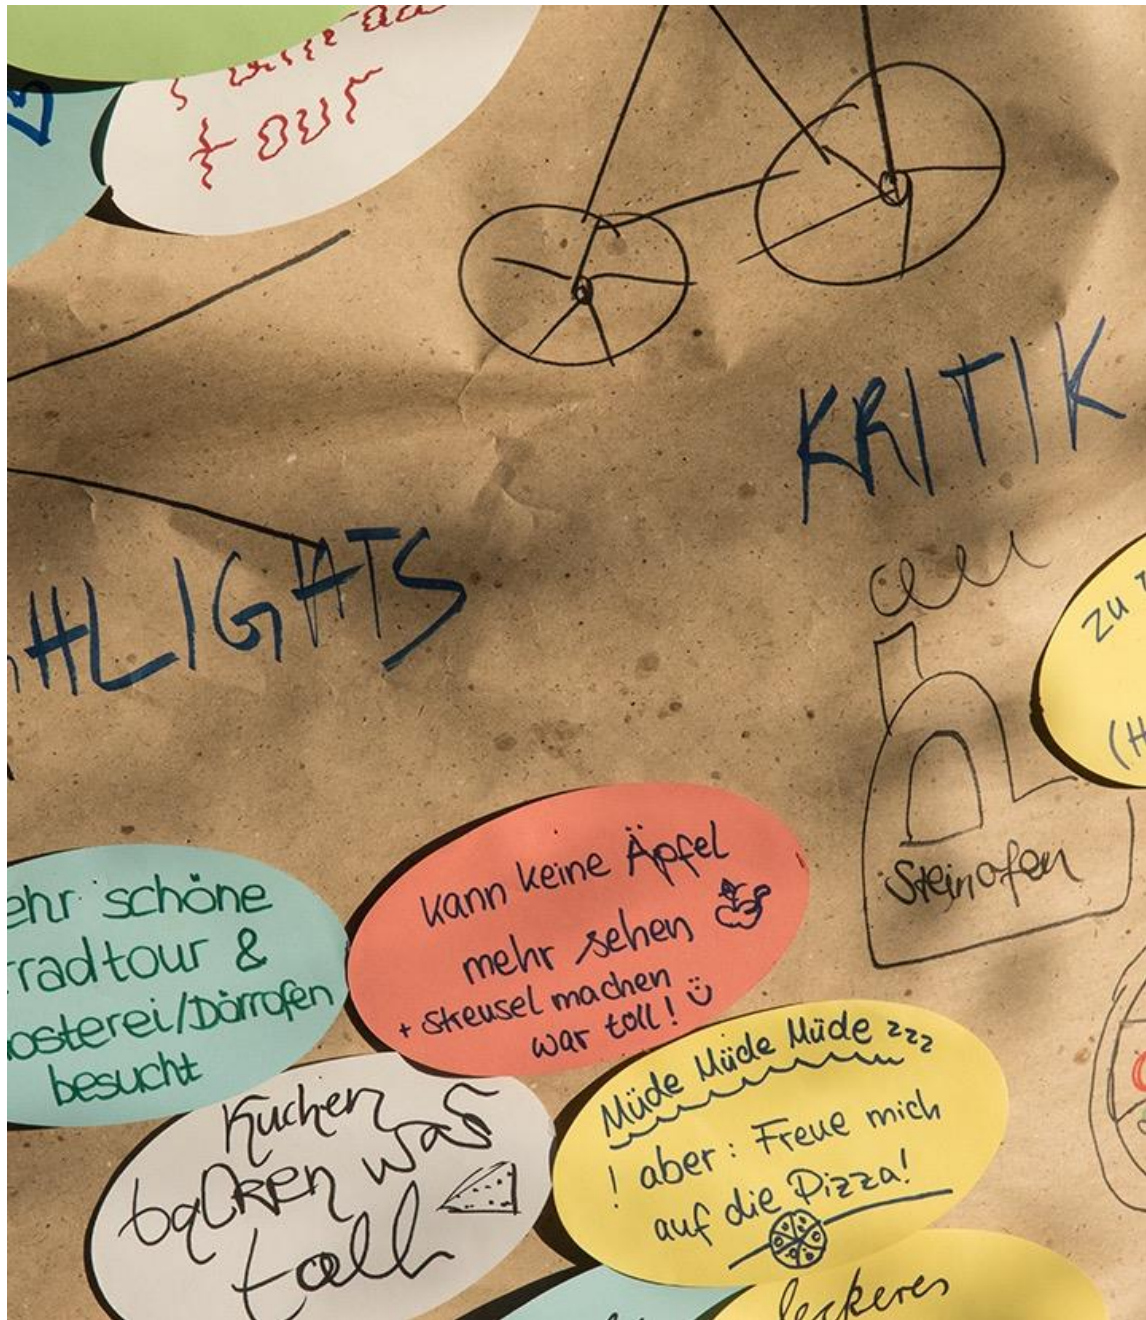 tour
KRITIK
HLIGHTS
zu
(H
Steinofen
ehr schöne
rradtour &
osterei/Dörrofen
besucht
kann keine Äpfel
mehr sehen
+ streusel machen
war toll! ü
Kuchen
backen was
toll
Müde Müde Müde zzz
! aber: Freue mich
auf die Pizza!
leckeres